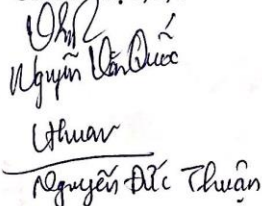 Nguyễn Văn Quốc
Thuan
Nguyễn Đức Thuận